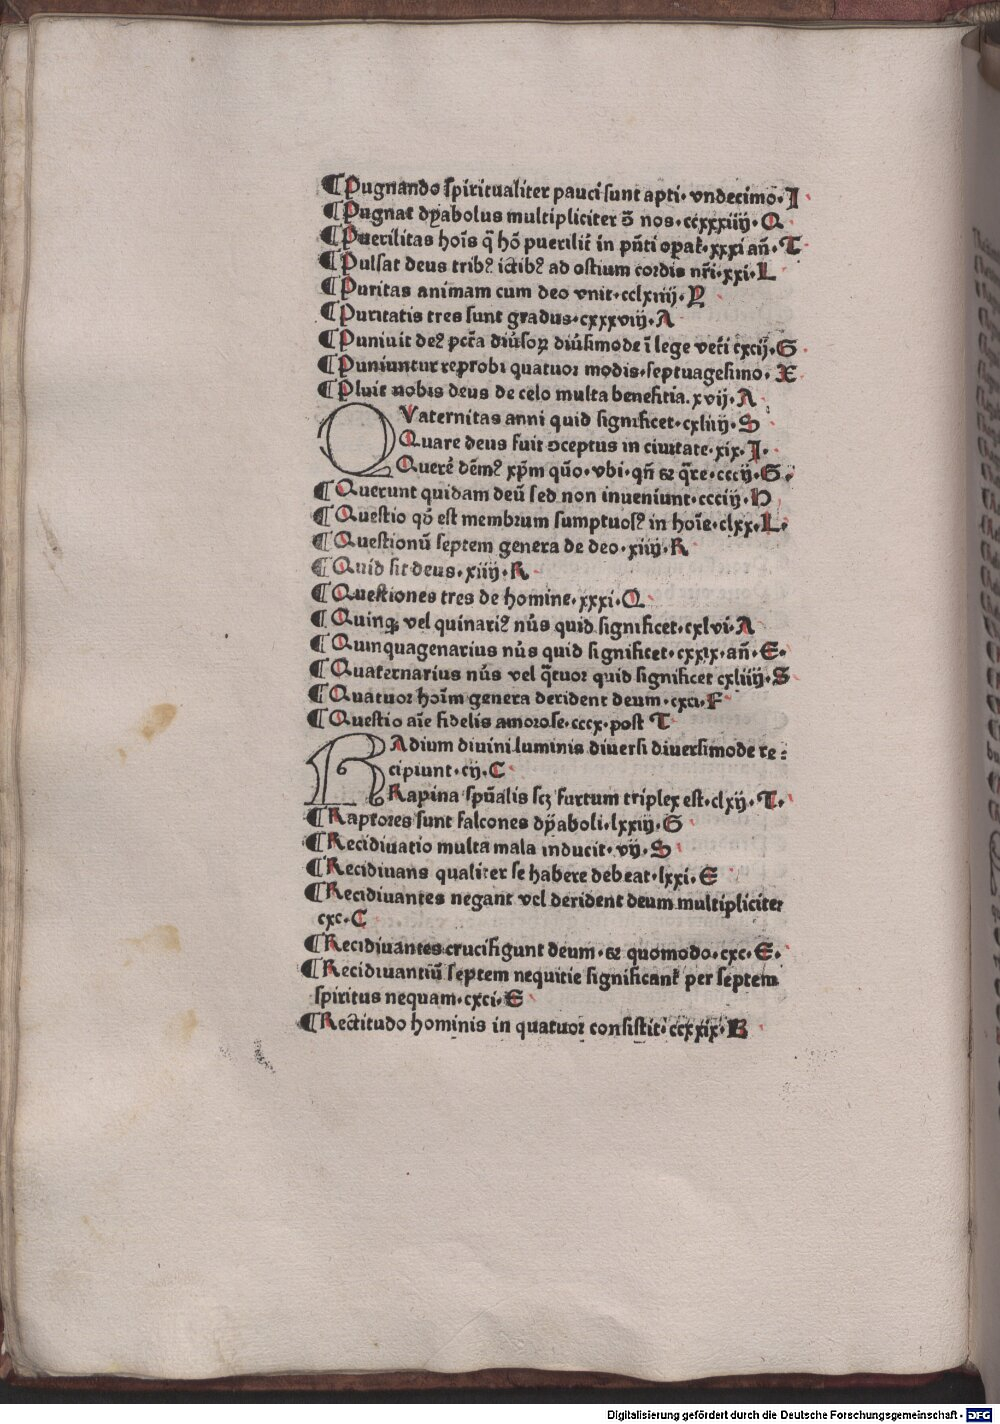 ¶Pugnando spiritualiter pauci sunt apti· vndecimo·I
¶Pugnat dyabolus multipliciter ↄ̄ nos·ccxxxiiij·Q
¶Puerilitas hoı̄s q̄ hō puerilit̄ in pn̄ti opat᷒·xxxi an̄·T
¶Pulsat deus tribꝰ ictibꝰ ad ostium cordis nr̄i·xxi·L
¶Puritas animam cum deo vnit·cclxiiij·P
¶Puritatis tres sunt gradus·cxxxviij·A
¶Puniuit deꝰ pctā diu̓soꝝ diu̓simode ī lege vet̄i cxcij·G
¶Puniuntur reprobi quatuor modis·septuagesimo·X
¶Pluit nobis deus de celo multa benefitia.xvij·A
QVaternitas anni quid significet·cxliiij·S
Quare deus fuit ↄceptus in ciuitate·xix·I·
Querē dēmꝰ xp̄m qūo·vbi·qn̄ & q̄re·cccij·G·
¶Querunt quidam deū sed non inueniunt·ccciij·D
¶Questio qō est membrum sumptuosꝰ in hoı̄e·clxx·L·
¶Questionū septem genera de deo·xiiij·R
¶Quid sit deus·xiiij·R
¶Questiones tres de homine·xxxi·Q
¶Quinqꝫ vel quinariꝰ nu̓s quid significet·cxlvi·A
¶Quinquagenarius nu̓s quid significet·cxxix·an̄·E·
¶Quaternarius nu̓s vel q̄tuor quid significet cxliiij·S
¶Quatuor hoı̄m genera derident deum·cxci·F
¶Questio aı̄e fidelis amorose·cccx·post T
RAdium diuini luminis diuersi diuersimode re⸗
cipiunt·cij·C
Rapina spūalis scꝫ furtum triplex est·clxij·T·
¶Raptores sunt falcones dyaboli·lxxiij·G
¶Recidiuatio multa mala inducit·vij·S
¶Recidiuans qualiter se habere debeat·lxxi·E
¶Recidiuantes negant vel derident deum multipliciter
cxc·C
¶Recidiuantes crucifigunt deum·& quomodo·cxc·E·
¶Recidiuantiū septem nequitie significant᷒ per septem
spiritus nequam·cxci·E
¶Rectitudo hominis in quatuor consistit·ccxxix·B
Digitalisierung gefördert durch die Deutsche Forschungsgemeinschaft - DFG